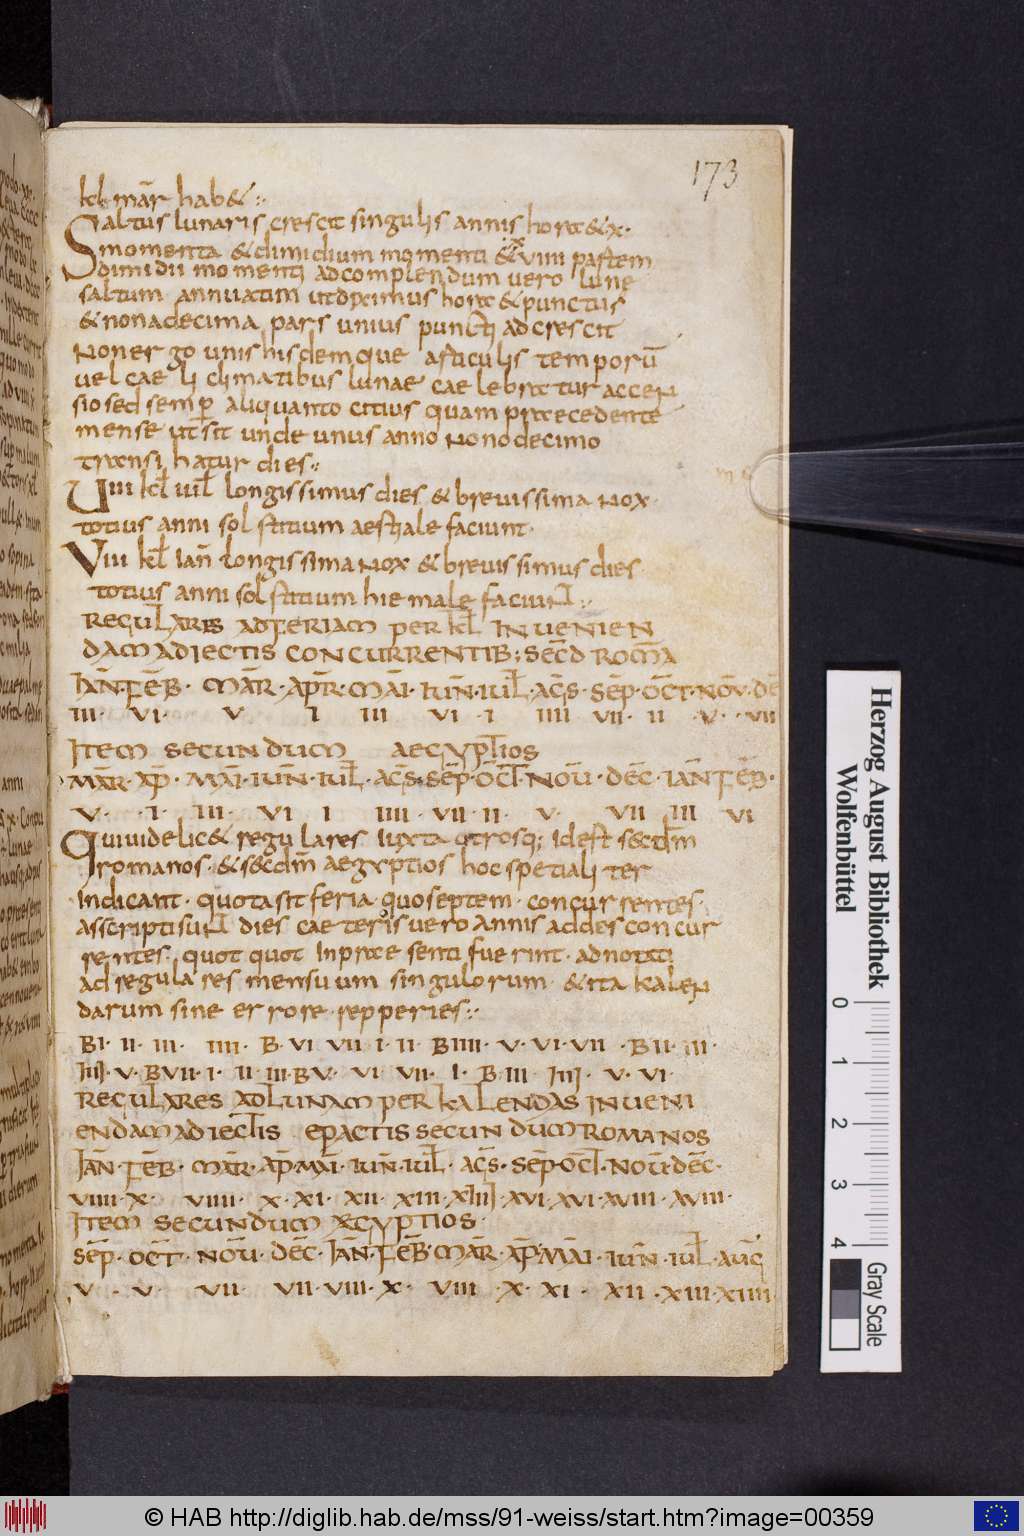 173
kl mar̄ hab&
Saltus lunaris crescit singulis annis horae & x·
momenta & dimidium momenti & x viiii partem
dimidii momenti ad complendum vero lune
saltum annuatim ut diximus horae & punctus
& nona decima pars unius puncti adcrescit
Non ergo unis hisdemque articulis temporū
vel caeli climatibus lunae caelebratur accen
sio sed semp̱ aliquanto citius quam praecedente
mense ut sit unde unus anno nonodecimo
transi hatur dies
Uiii kl iul longissimus dies & brevissima nox
totius anni solstitium aestiale faciunt·
Viii kl ian̄ longissima nox & brevissimus dies
totius anni solstitium hiemale faciunt
REGULARES AD FERIAM PER KL INVENIEN
DAM ADIECTIS CONCURRENTIB; SECD ROMA
IAN̄·FEB̄· MAR̄·APR̄·MAI·IUN̄·IUL·AGS·SEP̄·OCT·NOV̄·DE
III· VI· V I III VI I IIII VII· II V· VII
ITEM SECUNDUM AEGYPTIOS
MAR̄·AP̄· MAI·IUN̄·IUL·AGS·SEP̄·OCT·NOV̄·DEC̄·IAN̄·FEB̄·
V· I· III· VI I IIII VII·II· V· VII III VI
Qui videlic& regulares iuxta utrosq; id est secdm̄
romanos·& secdm̄ aegyptios hoc spetialiter
indicant· quota sit feria quo septem· concurrentes·
asscripti sunt dies caeteris vero annis addes concur
rentes· quot quot in praesenti fuerint· adnotati
ad regulares mensuum singulorum· & ita kalen
darum sine errore repperies
BI· II· III· IIII· B·VI VII I· II· BIIII· V· VI·VII· BII· III·
IIII·V·BVII·I· II III·BV· VI VII· I· B·III· IIII· V· VI·
REGULARES AD LUNAM PER KALENDAS INVENI
ENDAM ADIECTIS EPACTIS SECUNDUM ROMANOS
IAN̄·FEB̄· MAR̄·AP̄·MAI·IUN̄·IUL· AGS·SEP̄·OCT·NOV̄·DEC̄·
VIIII·X· VIIII· X·XI· XII· XIII·XIIII·XVI·XVI·XVIII·XVIII·
ITEM SECUNDUM AEGYPTIOS·
SEP̄·OCT̄·NOV̄·DEC̄·IAN̄·FEB̄·MAR̄·AP̄·MAI·IUN̄·IUL·AUG
V· V· VII· VII·VIII·X· VIII· X·XI· XII·XIII·XIIII
Herzog August Bibliothek
Wolfenbüttel
0 1 2 3 4
Gray Scale
© HAB http://diglib.hab.de/mss/91-weiss/start.htm?image=00359